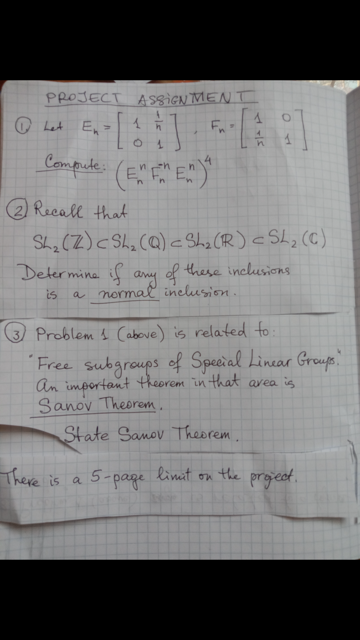 PROJECT ASSIGNMENT
① Let Eₙ = [ 1 1/n ; 0 1 ], Fₙ = [ 1 0 ; 1/n 1 ]
Compute: (Eₙⁿ Fₙ⁻ⁿ Eₙⁿ)⁴
② Recall that
SL₂(ℤ) ⊂ SL₂(ℚ) ⊂ SL₂(ℝ) ⊂ SL₂(ℂ)
Determine if any of these inclusions
is a normal inclusion.
③ Problem 1 (above) is related to:
"Free subgroups of Special Linear Groups."
An important theorem in that area is
Sanov Theorem.
State Sanov Theorem.
There is a 5-page limit on the project.